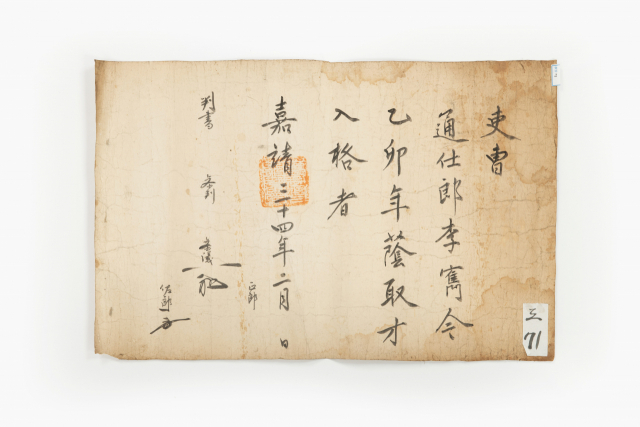 吏曹
通仕郎李寯今
乙卯年蔭取才
入格者
嘉靖三十四年二月 日
判書 参判 参議 正郎
佐郎
互
71